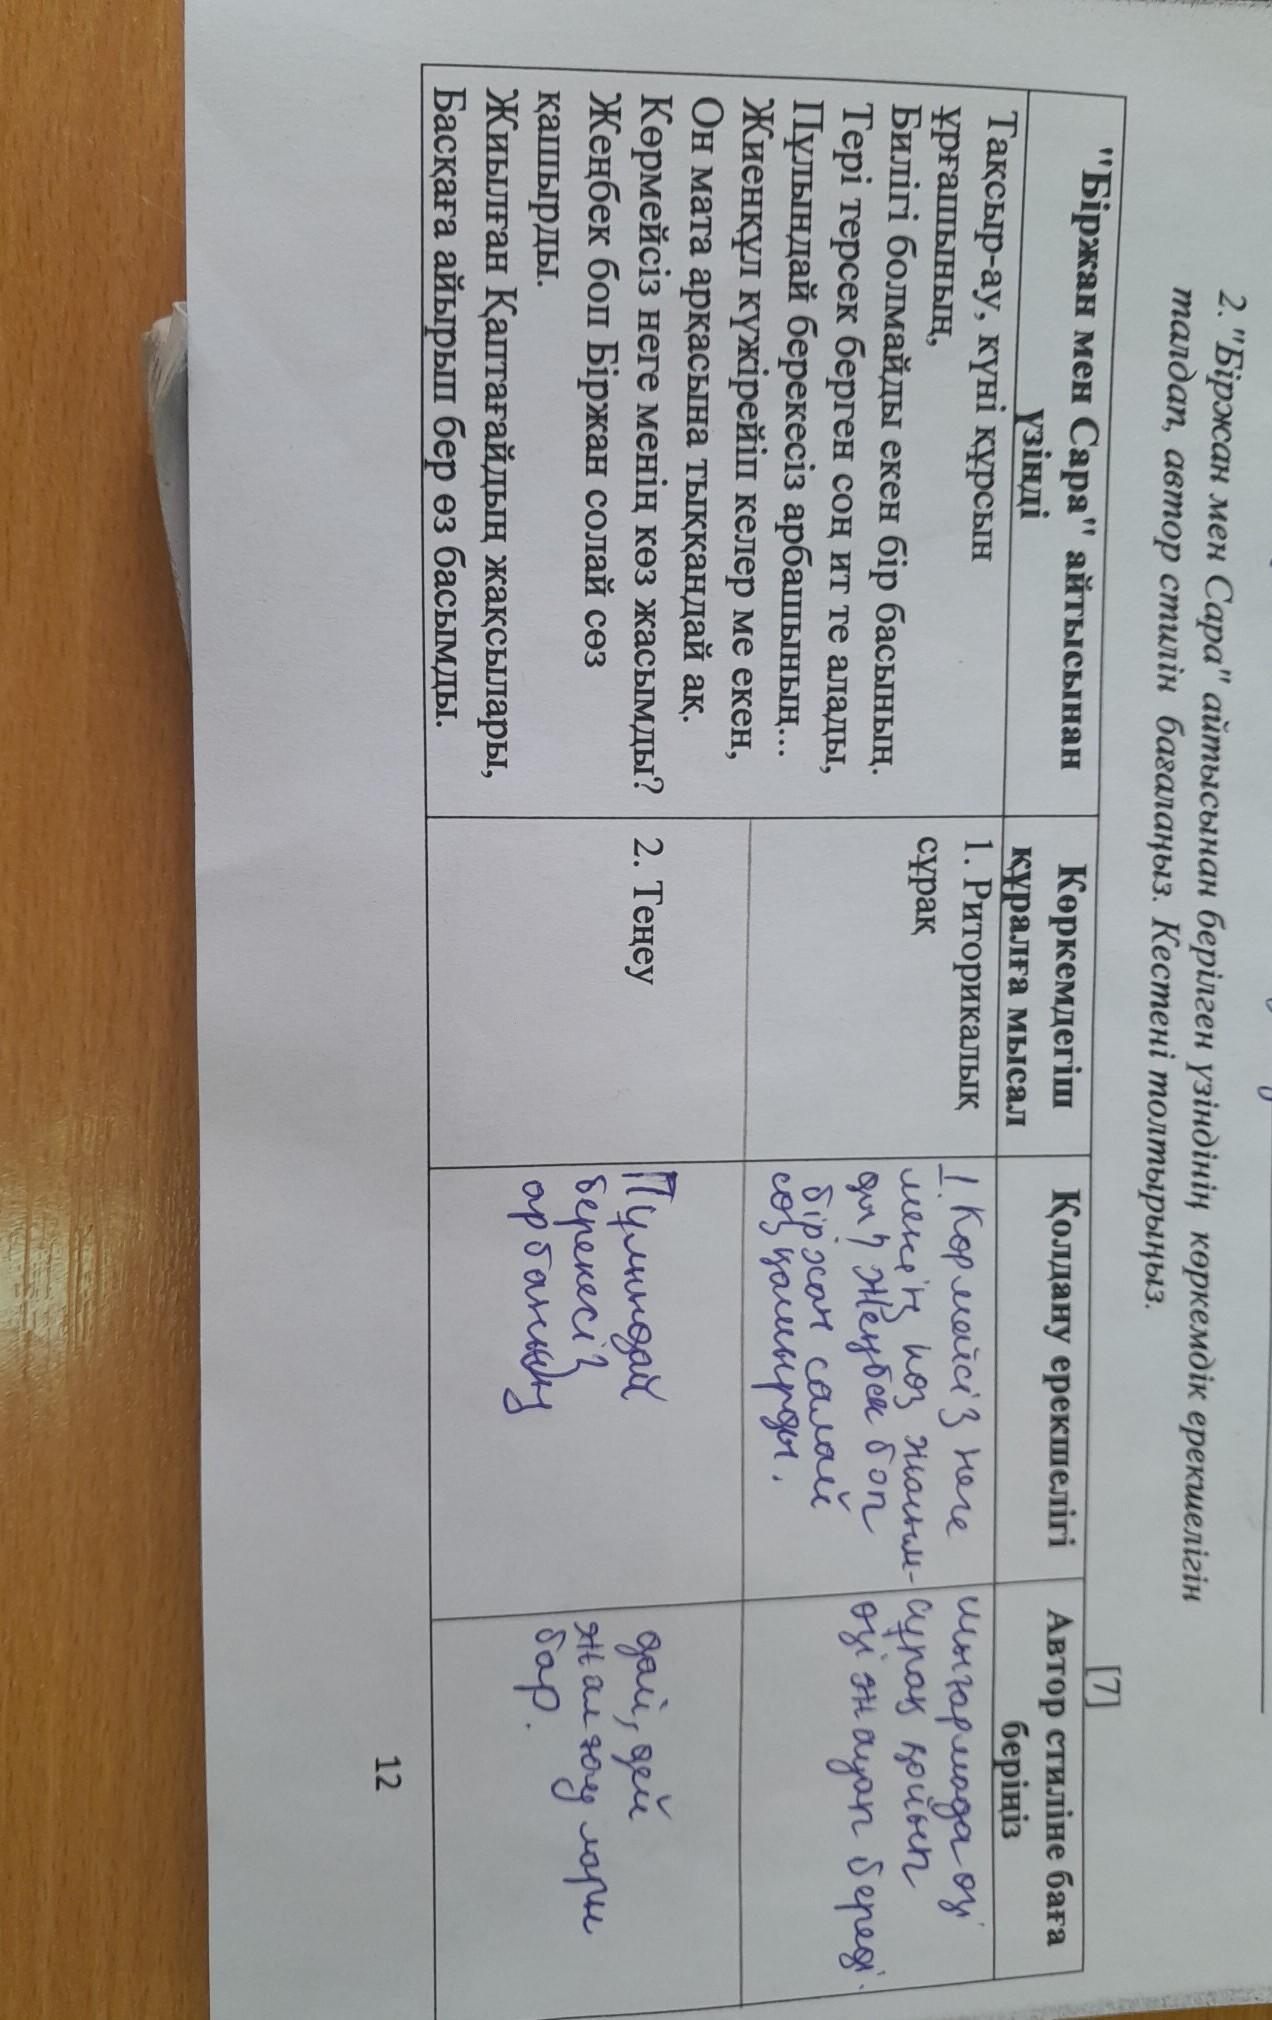 2. "Біржан мен Сара" айтысынан берілген үзіндінің көркемдік ерекшелігін
талдап, автор стилін бағалаңыз. Кестені толтырыңыз.
[7]
"Біржан мен Сара" айтысынан
үзінді
Көркемдегіш
құралға мысал
Қолдану ерекшелігі
Автор стиліне баға
беріңіз
Тақсыр-ау, күні құрсын
ұрғашының,
Билігі болмайды екен бір басының.
Тері терсек берген соң ит те алады,
Пұлындай берекесіз арбашының...
Жиенқұл күжірейіп келер ме екен,
Он мата арқасына тыққандай ақ.
Көрмейсіз неге менің көз жасымды?
Жеңбек боп Біржан солай сөз
қашырды.
Жиылған Қаптағайдың жақсылары,
Басқаға айырып бер өз басымды.
1. Риторикалық
сұрақ
1. Көрмейсіз неге
менің көз жасым-
ды? Жеңбек боп
біржан солай
сөз қашырды.
шығармада өзі
сұрақ қойып
өзі жауап береді.
2. Теңеу
Пұлындай
берекесіз
арбаның
дай, дей
жалғаулары
бар.
12